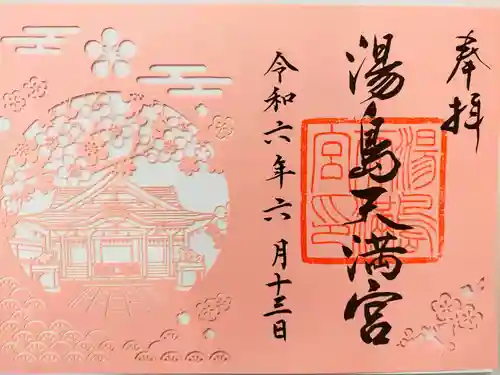 奉拝
湯島天満宮
令和六年六月十三日